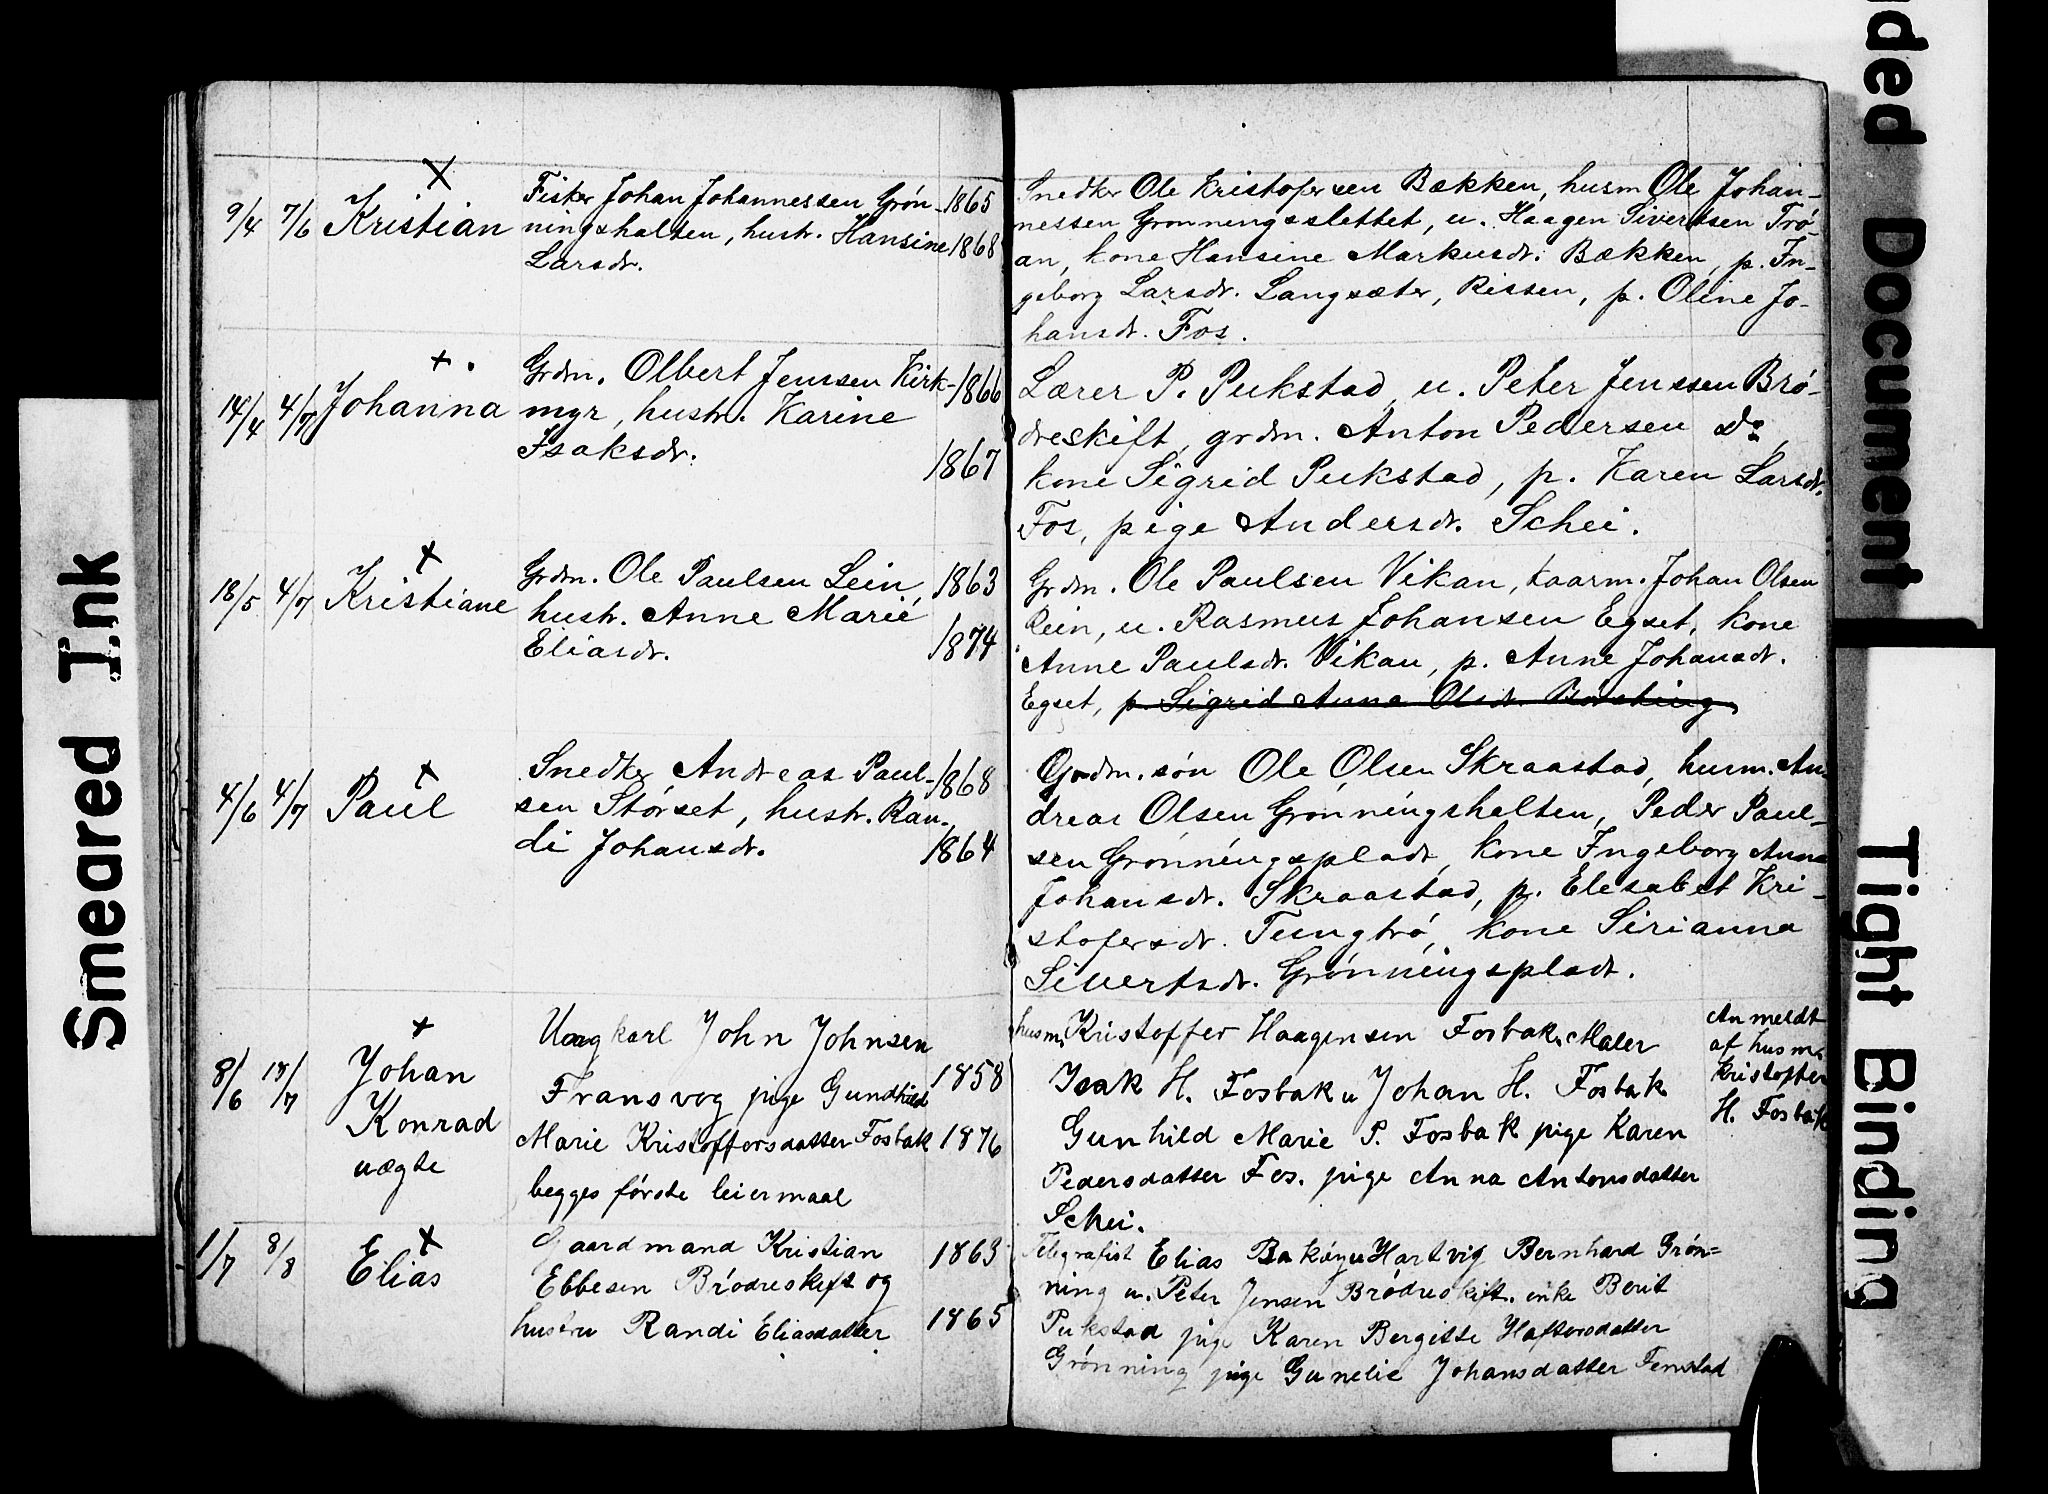 9/4 7/6 Kristian
Fisker Johan Johannessen Grøn- 1865
ningshalten, hustr. Hansine 1868
Larsdr.
Snedker Ole Kristofersen Bækken, husm Ole Johan-
nessen Grønningsslettet, u. Haagen Sivertsen Trø-
an, kone Hansine Markusdr. Bækken, p. In-
geborg Larsdr. Langsæter, Rissen, p. Oline Jo-
hansdr. Fos.
14/4 4/7 Johanna
Grdm. Olbert Jenssen Kirk- 1866
myr, hustr. Karine
Isaksdr. 1867
Lærer P. Pukstad, u. Peter Jenssen Brø-
dreskift, grdm. Anton Pedersen do,
kone Sigrid Pukstad, p. Karen Larsdr.
Fos, pige Andersdr. Schei.
18/5 4/7 Kristiane
Grdm. Ole Paulsen Lein, 1863
hustr. Anne Marie
Eliasdr. 1874
Grdm. Ole Paulsen Vikan, kaarm. Johan Olsen
Rein, u. Rasmus Johansen Egset, kone
Anne Paulsdr. Vikan, p. Anne Johansdr.
Egset, p. Sigrid Anna Olsdr.
4/6 4/7 Paul
Snedker Andreas Paul- 1868
sen Størset, hustr. Ran-
di Johansdr. 1864
Grdm. søn Ole Olsen Skraastad, husm. An-
dreas Olsen Grønningshalten, Peder Paul-
sen Grønningsplads, kone Ingeborg Anna
Johansdr. Skraastad, p. Elesabet Kri-
stofersdr. Tungtrø, kone Sirianna
Sivertsdr. Grønningsplads.
8/6 18/7 Johan
Konrad
uægte
Ungkarl John Johnsen
Fransvog pige Gundhild 1858
Marie Kristoffersdatter Fosbak 1876
begges første leiermaal
husm. Kristoffer Haagensen Fosbak, Maler
Isak H. Fosbak u Johan H. Fosbak
Gunhild Marie P. Fosbak pige Karen
Pedersdatter Fos. pige Anna Antonsdatter
Schei.
Anmeldt
af husm.
Kristoffer
H. Fosbak
1/7 8/8 Elias
Gaardmand Kristian 1863
Ebbesen Brødreskift og
hustru Randi Eliasdatter 1865
Telegrafist Elias Hartvig Bernhard Grøn=
ning u. Peter Jensen Brødreskift. enke Berit
Pukstad pige Karen Bergitte Haftorsdatter
Grønning pige Gunelie Johansdatter Femstad
Smeared Ink
nded Document
Tight Binding